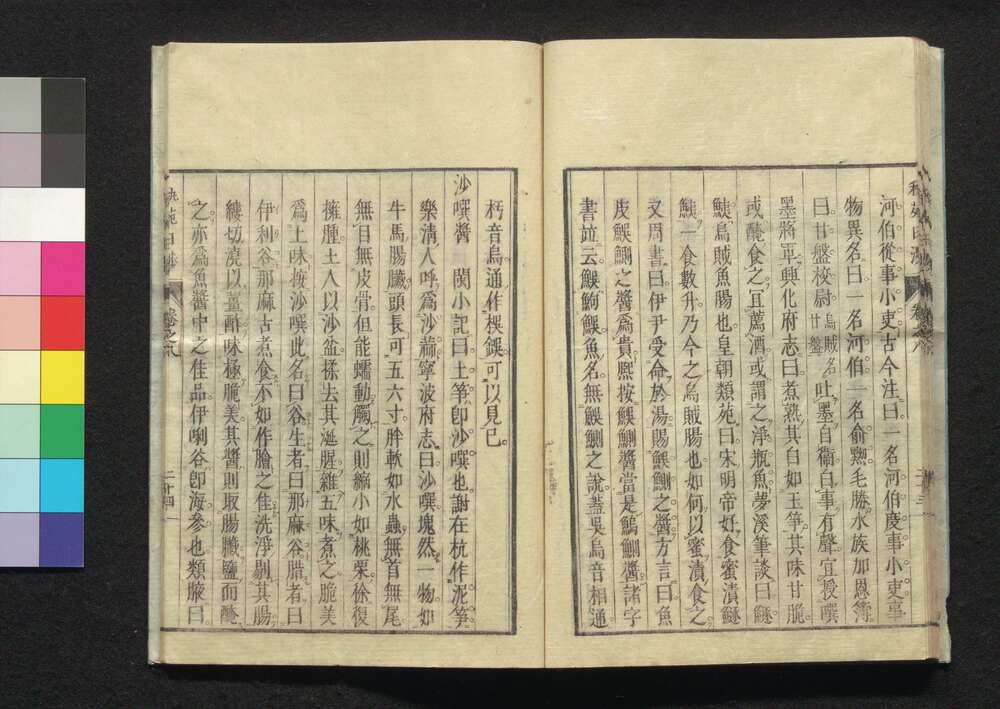 河伯從事小吏古今注曰一名河伯度事小吏事
物異名曰一名河伯一名俞㷱毛勝水族加恩簿
曰甘盤校尉烏賊名甘盤吐墨自衞白事有聲宜授噀
墨將軍興化府志曰煮熟其白如玉箏其味甘脆
或醃食之宜薦酒或謂之淨瓶魚夢溪筆談曰鱁
鮧烏賊魚腸也皇朝類苑曰宋明帝好食蜜漬鱁
鮧一食數升乃今之烏賊腸也如何以蜜漬食之
又周書曰伊尹受命於湯賜鯸鰂之醬方言曰魚
皮鯸鰂之醬爲貴熙按鯸鰂醬當是鰞鰂醬諸字
書竝云鯸鮈鯸魚名無鯸鰂之說蓋吴烏音相通
朽音烏通作杇鋘可以見已
沙噀醬 閩小記曰土筍卽沙噀也謝在杭作泥筍
樂淸人呼爲沙蒜寧波府志曰沙噀塊然一物如
牛馬腸臟頭長可五六寸胖軟如水蟲無首無尾
無目無皮骨但能蠕動觸之則縮小如桃栗徐復
擁腫土人以沙盆揉去其涎腥雜五味煮之脆美
爲上味按沙噀此名曰谷生者曰那麻谷腊者曰
伊利谷那麻古煮食不如作膾之佳洗淨剔其腸
縷切澆以薑酢味極脆美其醬則取腸臟鹽而醃
之亦爲魚醬中之佳品伊唎谷卽海參也類腴曰
卷之八
二十四